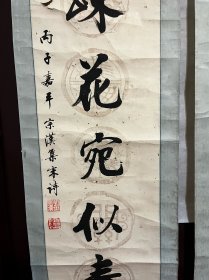 疎花宛似春
丙子嘉平宗漢集宋詩